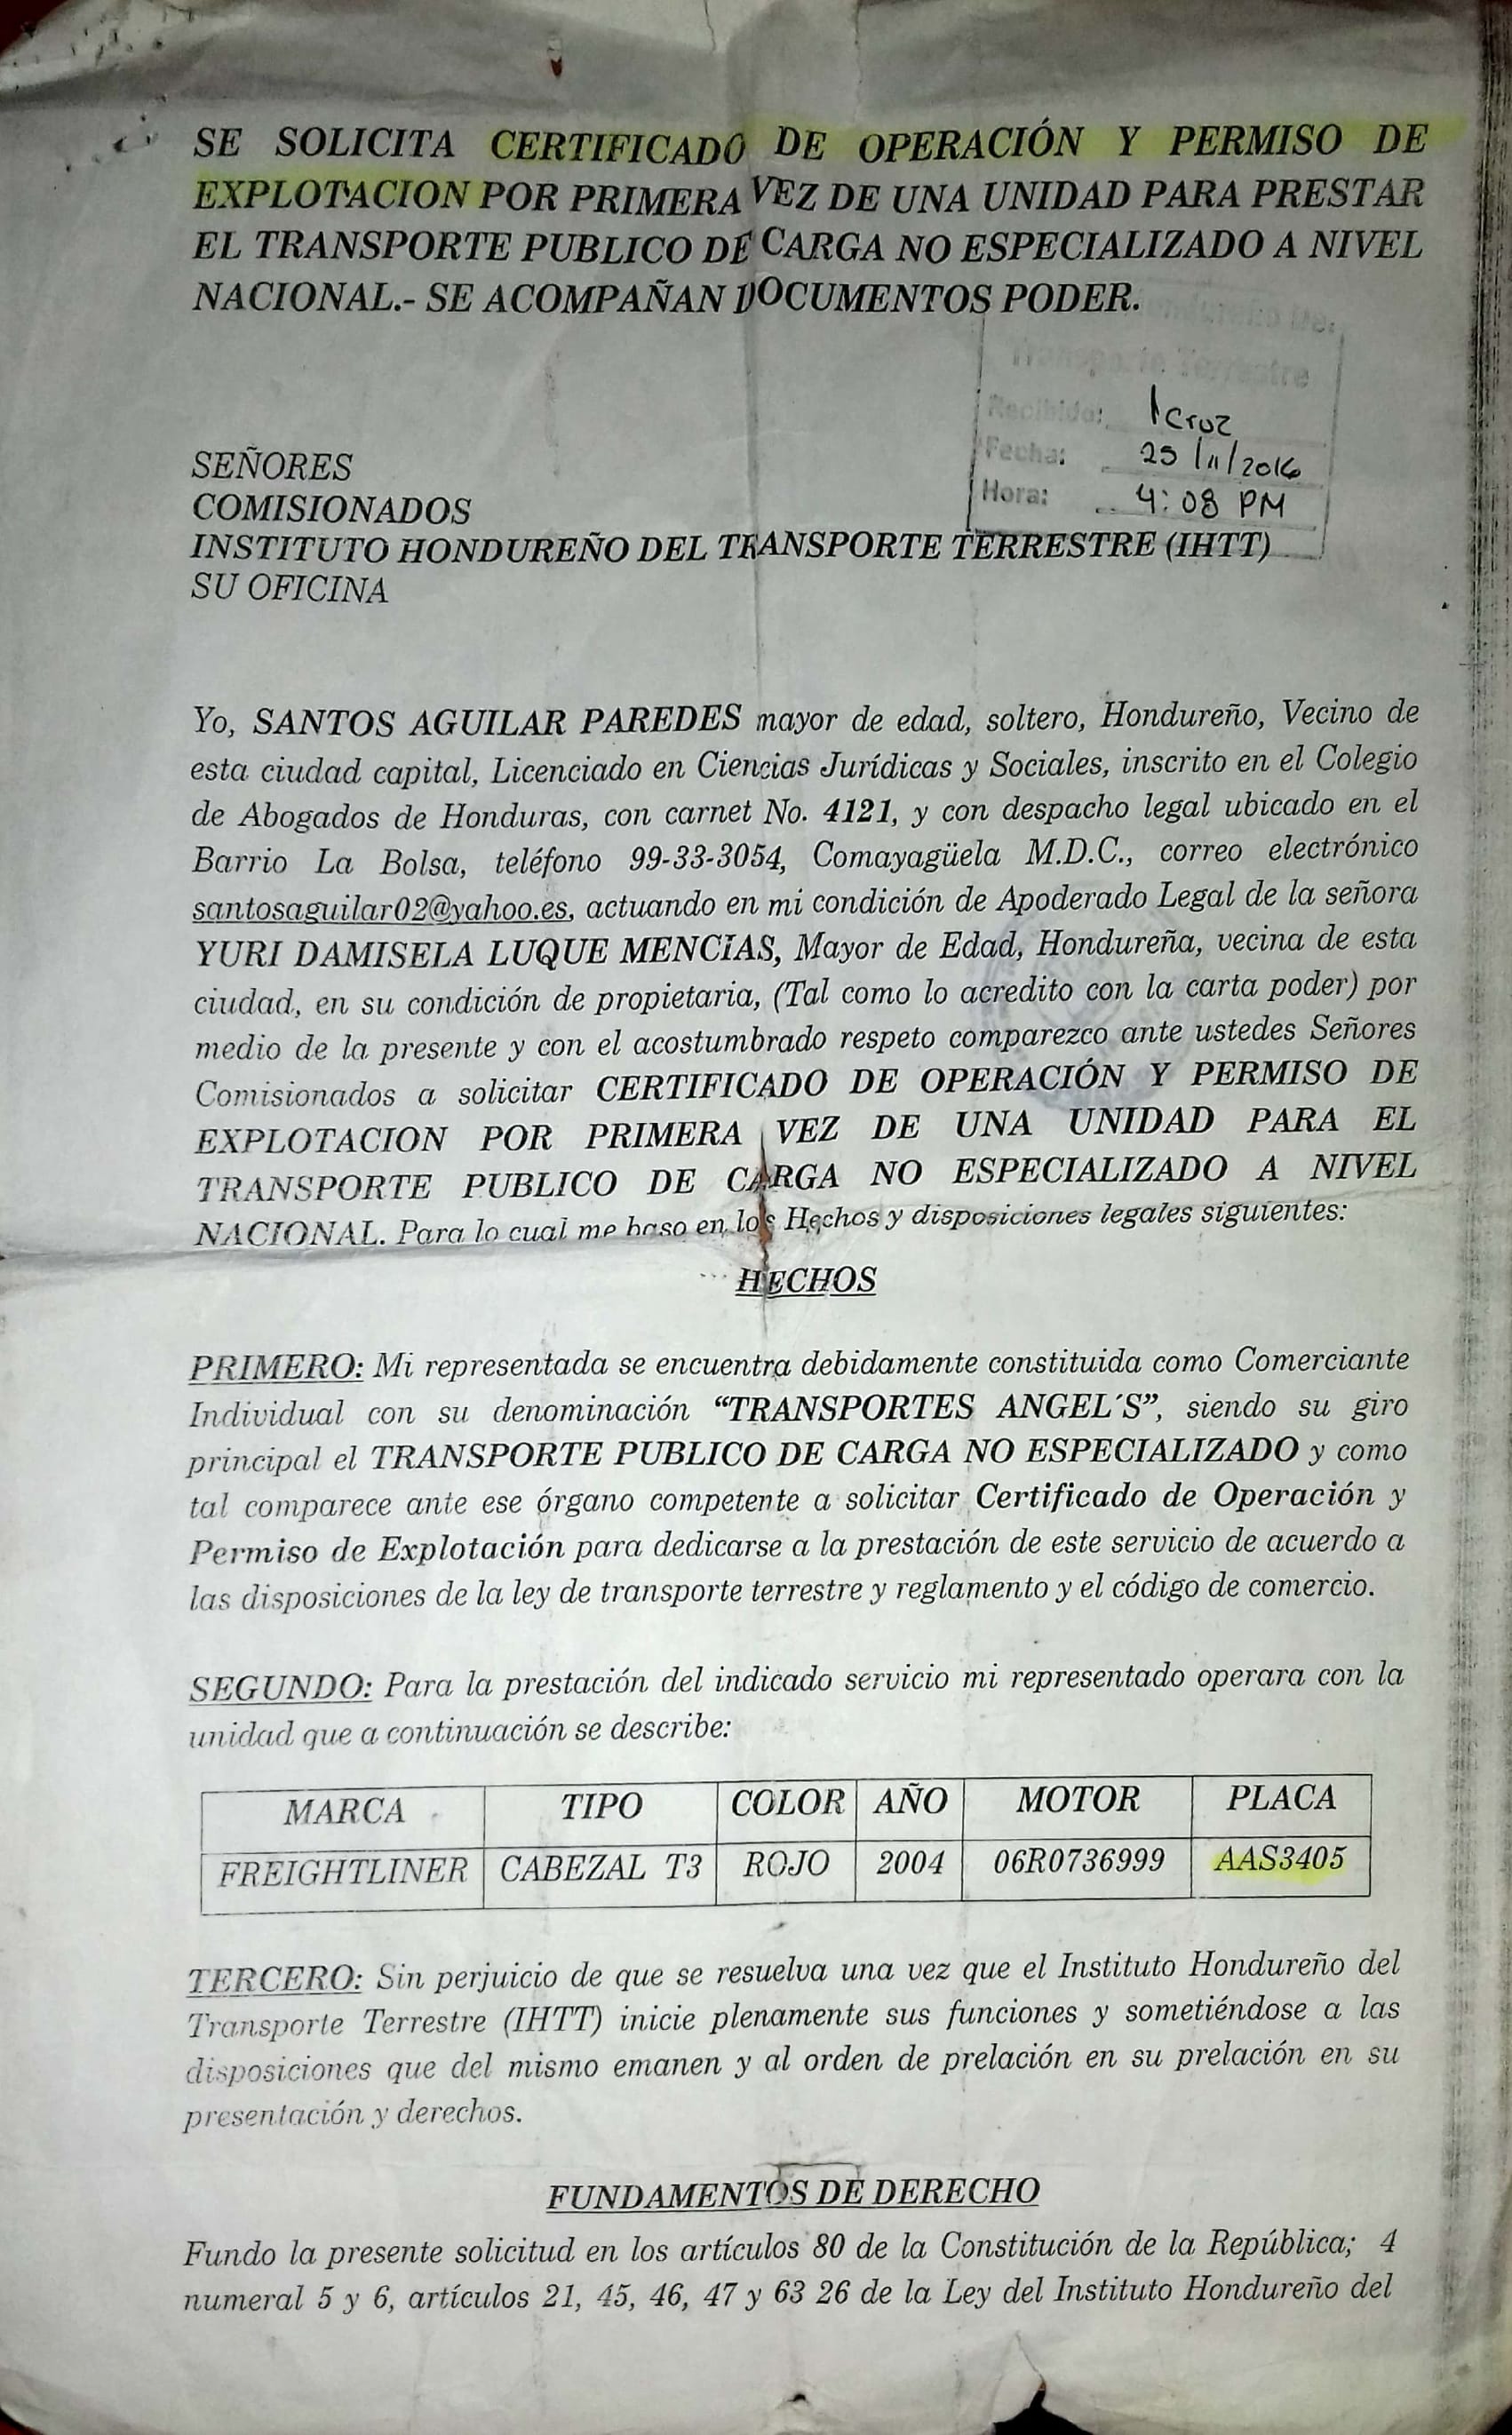 SE SOLICITA CERTIFICADO DE OPERACIÓN Y PERMISO DE
EXPLOTACION POR PRIMERA VEZ DE UNA UNIDAD PARA PRESTAR
EL TRANSPORTE PUBLICO DE CARGA NO ESPECIALIZADO A NIVEL
NACIONAL.- SE ACOMPAÑAN DOCUMENTOS PODER.
Transporte Terrestre
Recibido: Cruz
Fecha: 25/11/2016
Hora: 4:08 PM
SEÑORES
COMISIONADOS
INSTITUTO HONDUREÑO DEL TRANSPORTE TERRESTRE (IHTT)
SU OFICINA
Yo, SANTOS AGUILAR PAREDES mayor de edad, soltero, Hondureño, Vecino de
esta ciudad capital, Licenciado en Ciencias Jurídicas y Sociales, inscrito en el Colegio
de Abogados de Honduras, con carnet No. 4121, y con despacho legal ubicado en el
Barrio La Bolsa, teléfono 99-33-3054, Comayagüela M.D.C., correo electrónico
santosaguilar02@yahoo.es, actuando en mi condición de Apoderado Legal de la señora
YURI DAMISELA LUQUE MENCIAS, Mayor de Edad, Hondureña, vecina de esta
ciudad, en su condición de propietaria, (Tal como lo acredito con la carta poder) por
medio de la presente y con el acostumbrado respeto comparezco ante ustedes Señores
Comisionados a solicitar CERTIFICADO DE OPERACIÓN Y PERMISO DE
EXPLOTACION POR PRIMERA VEZ DE UNA UNIDAD PARA EL
TRANSPORTE PUBLICO DE CARGA NO ESPECIALIZADO A NIVEL
NACIONAL. Para lo cual me baso en los Hechos y disposiciones legales siguientes:
HECHOS
PRIMERO: Mi representada se encuentra debidamente constituida como Comerciante
Individual con su denominación “TRANSPORTES ANGEL´S”, siendo su giro
principal el TRANSPORTE PUBLICO DE CARGA NO ESPECIALIZADO y como
tal comparece ante ese órgano competente a solicitar Certificado de Operación y
Permiso de Explotación para dedicarse a la prestación de este servicio de acuerdo a
las disposiciones de la ley de transporte terrestre y reglamento y el código de comercio.
SEGUNDO: Para la prestación del indicado servicio mi representado operara con la
unidad que a continuación se describe:
MARCA TIPO COLOR AÑO MOTOR PLACA
FREIGHTLINER CABEZAL T3 ROJO 2004 06R0736999 AAS3405
TERCERO: Sin perjuicio de que se resuelva una vez que el Instituto Hondureño del
Transporte Terrestre (IHTT) inicie plenamente sus funciones y sometiéndose a las
disposiciones que del mismo emanen y al orden de prelación en su prelación en su
presentación y derechos.
FUNDAMENTOS DE DERECHO
Fundo la presente solicitud en los artículos 80 de la Constitución de la República; 4
numeral 5 y 6, artículos 21, 45, 46, 47 y 63 26 de la Ley del Instituto Hondureño del